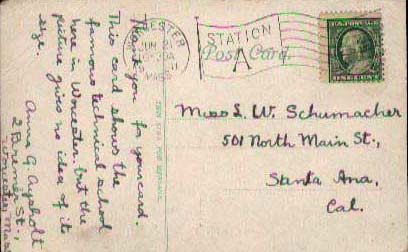 Thank you for your card.
This card shows the
famous technical school
here in Worcester. but the
picture gives no idea of its
size.
Anna G.
2 Bremer St.,
Worcester Mass
STATION
A
Post Card.
JUN
MASS
U.S. POSTAGE
ONE CENT
Miss L. W. Schumacher
501 North Main St.,
Santa Ana,
Cal.